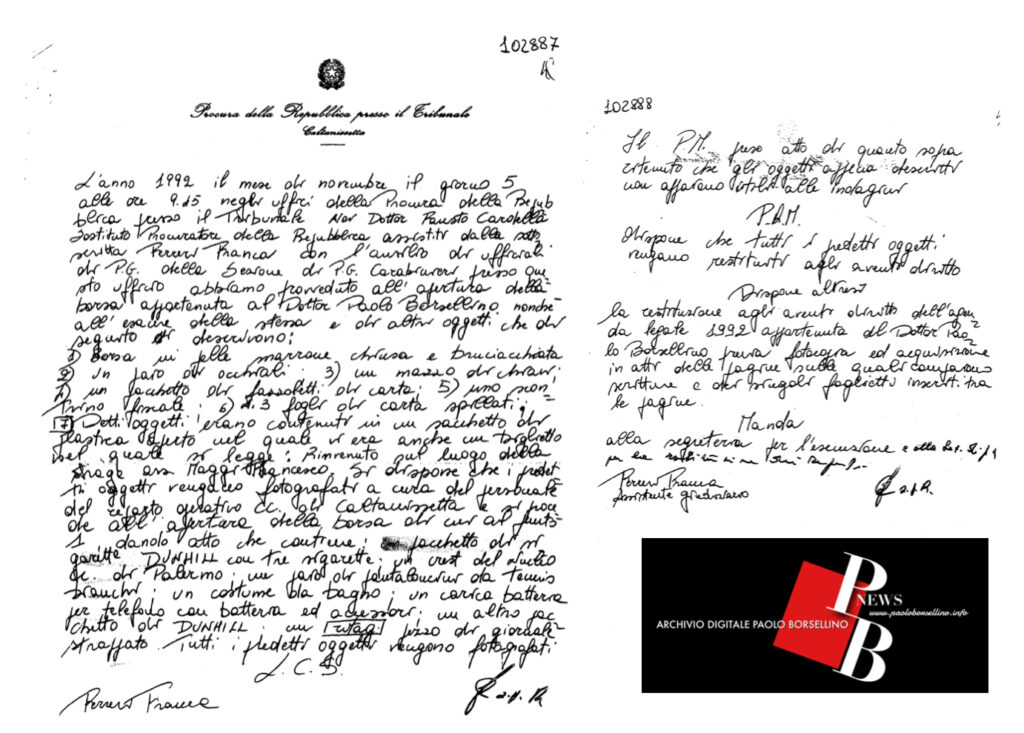 102887
Procura della Repubblica presso il Tribunale
Caltanissetta
L'anno 1992 il mese di novembre il giorno 5
alle ore 9.15 negli uffici della Procura della Repub
blica presso il Tribunale Noi Dottor Fausto Cardella
Sostituto Procuratore della Repubblica assistiti dalla sotto
scritta Ferrero Franca con l'ausilio di ufficiali
di P.G. della Sezione di P.G. Carabinieri presso que
sto ufficio abbiamo provveduto all'apertura della
borsa appartenuta al Dottor Paolo Borsellino nonchè
all'esame della stessa e di altri oggetti che di
seguito si descrivono:
1) Borsa in pelle marrone chiusa e bruciacchiata
2) un paio di occhiali; 3) un mazzo di chiavi
4) un pacchetto di fazzoletti di carta; 5) uno scon=
trino fiscale; 6) n. 3 fogli di carta spillati;
7 Detti oggetti erano contenuti in un sacchetto di
plastica aperto nel quale vi era anche un biglietto
nel quale si legge: Rinvenuto sul luogo della
strage ass. Maggi Francesco. Si dispone che i predet
ti oggetti vengano fotografati a cura del personale
del reparto operativo CC. di Caltanissetta e si proce
de all'apertura della borsa di cui al punto
1 dandosi atto che contiene: pacchetto di si
garette DUNHILL con tre sigarette; un crest del Nucleo
CC. di Palermo; un paio di pantaloncini da tennis
bianchi; un costume da bagno; un carica batteria
per telefono con batteria ed accessori; un altro pac
chetto di DUNHILL; un pezzo di giornale
strappato. Tutti i predetti oggetti vengono fotografati.
L.C.S.
Ferrero Franca
102888
Il P.M. preso atto di quanto sopra
ritenuto che gli oggetti appena descritti
non appaiono utili alle indagini
P.Q.M.
dispone che tutti i predetti oggetti
vengano restituiti agli aventi diritto
Dispone altresì
la restituzione agli aventi diritto dell'agen
da legale 1992 appartenuta al Dottor Pao
lo Borsellino previa fotocopia ed acquisizione
in atti delle pagine sulle quali compaiono
scritture e dei singoli foglietti inseriti tra
le pagine.
Manda
alla segreteria per l'esecuzione e alla
per la
Ferrero Franca
Assistente giudiziario
P NEWS
www.paoloborsellino.info
ARCHIVIO DIGITALE PAOLO BORSELLINO
B